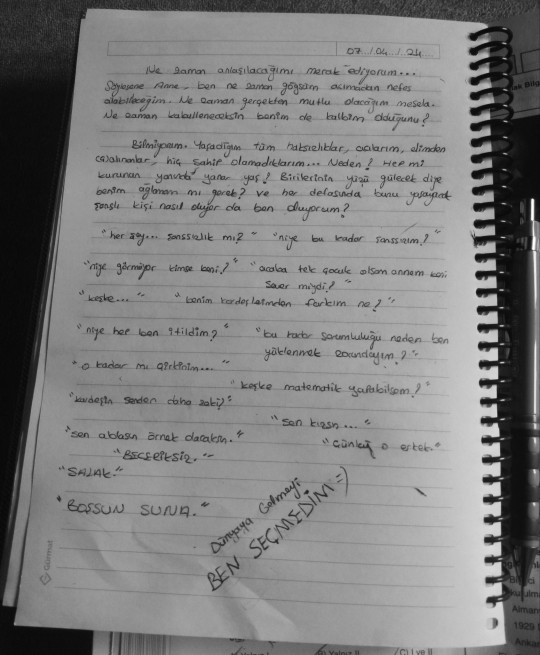 07 / 04 / 24
Ne zaman anlaşılacağımı merak ediyorum...
Söylesene Anne, ben ne zaman göğsüm acımadan nefes
alabileceğim. Ne zaman gerçekten mutlu olacağım mesela.
Ne zaman kabulleneceksin benim de kalbim olduğunu?
Bilmiyorum. Yaşadığım tüm haksızlıklar, acılarım, elimden
çalınanlar, hiç sahip olamadıklarım... Neden? Hep mi
kurunun yanında yanar yaş? Birilerinin yüzü gülecek diye
benim ağlamam mı gerek? Ve her defasında bunu yaşayarak
şanslı kişi nasıl oluyor da ben oluyorum?
"her şey... şanssızlık mı?" "niye bu kadar şanssızım?"
"niye görmüyor kimse beni?" "acaba tek çocuk olsam annem beni
sever miydi?"
"keşke..." "benim kardeşlerimden farkım ne?"
"niye hep ben itildim?" "bu kadar sorumluluğu neden ben
yüklenmek zorundayım?"
"o kadar mı çirkinim..."
"keşke matematik yapabilsem?"
"kardeşin senden daha zeki?"
"sen kızsın..."
"sen ablasın örnek olacaksın."
"Çünkü o erkek."
"BECERİKSİZ."
"SALAK."
"BOŞSUN SUNA."
Dünyaya Gelmeyi
BEN SEÇMEDİM =)
Gıpta